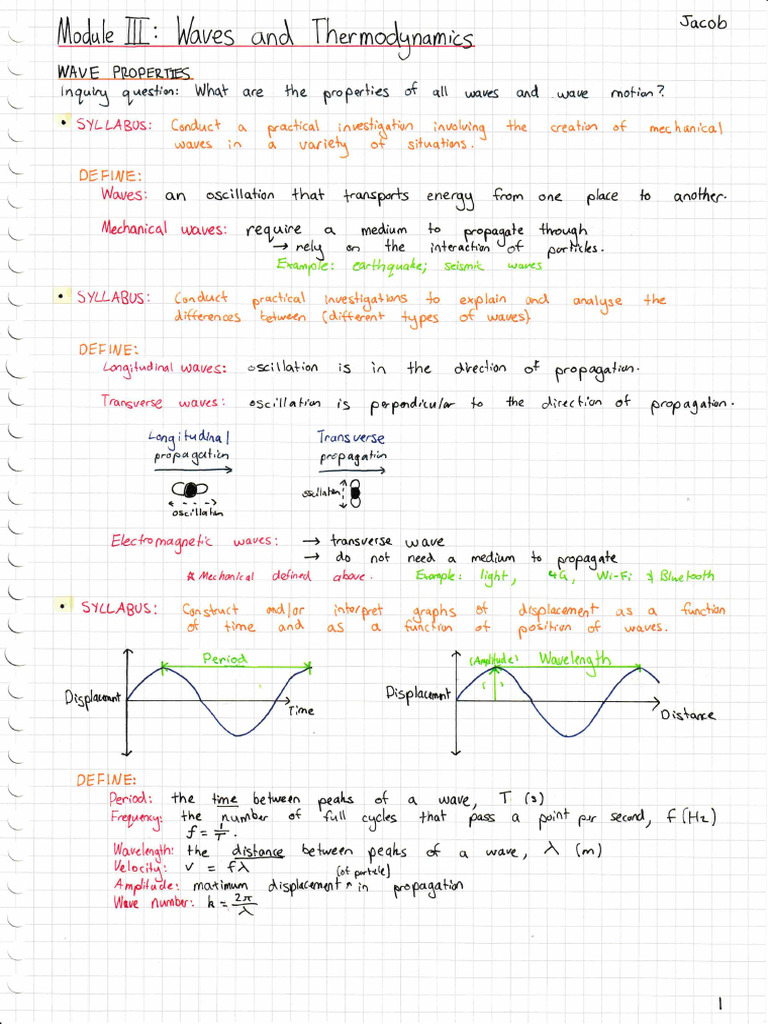 Jacob
Module III: Waves and Thermodynamics
WAVE PROPERTIES
Inquiry question: What are the properties of all waves and wave motion?
• SYLLABUS: Conduct a practical investigation involving the creation of mechanical
waves in a variety of situations.
DEFINE:
Waves: an oscillation that transports energy from one place to another.
Mechanical waves: require a medium to propagate through
→ rely on the interaction of particles.
Example: earthquake; seismic waves
• SYLLABUS: Conduct practical investigations to explain and analyse the
differences between (different types of waves)
DEFINE:
Longitudinal waves: oscillation is in the direction of propagation.
Transverse waves: oscillation is perpendicular to the direction of propagation.
Longitudinal Transverse
propagation propagation
oscillation
oscillation
Electromagnetic waves: → transverse wave
→ do not need a medium to propagate
* Mechanical defined above. Example: light, 4G, Wi-Fi & Bluetooth
• SYLLABUS: Construct and/or interpret graphs of displacement as a function
of time and as a function of position of waves.
Period (Amplitude) Wavelength
Displacement Displacement
Time Distance
DEFINE:
Period: the time between peaks of a wave, T (s)
Frequency: the number of full cycles that pass a point per second, f (Hz)
f = 1/T.
Wavelength: the distance between peaks of a wave, λ (m)
Velocity: v = fλ
(of particle)
Amplitude: maximum displacement ^ in propagation
Wave number: k = 2π/λ
1